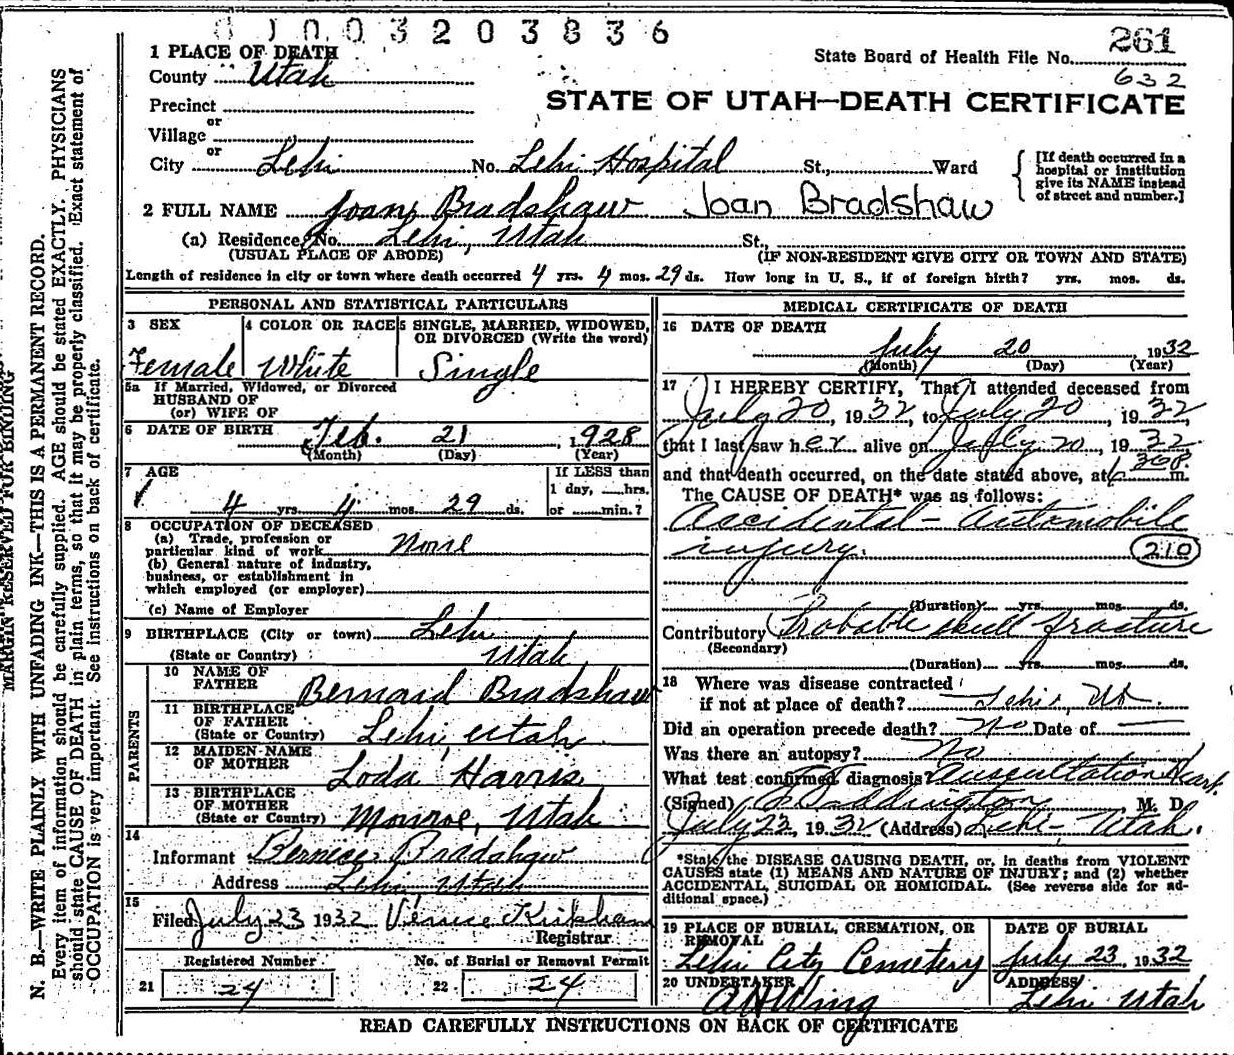 01003203836
261
State Board of Health File No.
632
1 PLACE OF DEATH
County Utah
STATE OF UTAH—DEATH CERTIFICATE
Precinct
or
Village
or
City Lehi No. Lehi Hospital St., Ward
[If death occurred in a hospital or institution give its NAME instead of street and number.]
2 FULL NAME Joan Bradshaw Joan Bradshaw
(a) Residence, No. Lehi, Utah St.,
(USUAL PLACE OF ABODE) (IF NON-RESIDENT GIVE CITY OR TOWN AND STATE)
Length of residence in city or town where death occurred 4 yrs. 4 mos. 29 ds. How long in U. S., if of foreign birth? yrs. mos. ds.
PERSONAL AND STATISTICAL PARTICULARS
3 SEX 4 COLOR OR RACE 5 SINGLE, MARRIED, WIDOWED, OR DIVORCED (Write the word)
Female White Single
5a If Married, Widowed, or Divorced
HUSBAND OF
(or) WIFE OF
6 DATE OF BIRTH Feb. 21, 1928
(Month) (Day) (Year)
7 AGE If LESS than
1 day, hrs.
4 yrs. 4 mos. 29 ds. or min.?
8 OCCUPATION OF DECEASED
(a) Trade, profession or
particular kind of work None
(b) General nature of industry,
business, or establishment in
which employed (or employer)
(c) Name of Employer
9 BIRTHPLACE (City or town) Lehi
(State or Country) Utah
PARENTS
10 NAME OF
FATHER Bernard Bradshaw
11 BIRTHPLACE
OF FATHER
(State or Country) Lehi, Utah
12 MAIDEN NAME
OF MOTHER Loda Harris
13 BIRTHPLACE
OF MOTHER
(State or Country) Monroe, Utah
14
Informant Bernice Bradshaw
Address Lehi, Utah
15
Filed July 23 1932 Vernice Kirkham
Registrar
Registered Number No. of Burial or Removal Permit
21 24 22 24
MEDICAL CERTIFICATE OF DEATH
16 DATE OF DEATH
July 20 1932
(Month) (Day) (Year)
17 I HEREBY CERTIFY, That I attended deceased from
July 20, 1932, to July 20, 1932,
that I last saw her alive on July 20, 1932
and that death occurred, on the date stated above, at 6 30 P. m.
The CAUSE OF DEATH* was as follows:
Accidental - Automobile
injury. 210
(Duration) yrs. mos. ds.
Contributory Probable skull fracture
(Secondary)
(Duration) yrs. mos. ds.
18 Where was disease contracted
if not at place of death? Lehi, Ut.
Did an operation precede death? No Date of
Was there an autopsy? No
What test confirmed diagnosis Auscultation Heart.
(Signed) Eddington, M. D.
July 23, 1932 (Address) Lehi - Utah.
*State the DISEASE CAUSING DEATH, or, in deaths from VIOLENT
CAUSES state (1) MEANS AND NATURE OF INJURY; and (2) whether
ACCIDENTAL, SUICIDAL OR HOMICIDAL. (See reverse side for ad-
ditional space.)
19 PLACE OF BURIAL, CREMATION, OR REMOVAL DATE OF BURIAL
Lehi City Cemetery July 23, 1932
20 UNDERTAKER ADDRESS
A H Wing Lehi Utah
READ CAREFULLY INSTRUCTIONS ON BACK OF CERTIFICATE
MARGIN RESERVED FOR BINDING
N. B.—WRITE PLAINLY WITH UNFADING INK—THIS IS A PERMANENT RECORD.
Every item of information should be carefully supplied. AGE should be stated EXACTLY. PHYSICIANS
should state CAUSE OF DEATH in plain terms, so that it may be properly classified. Exact statement of
OCCUPATION is very important. See instructions on back of certificate.